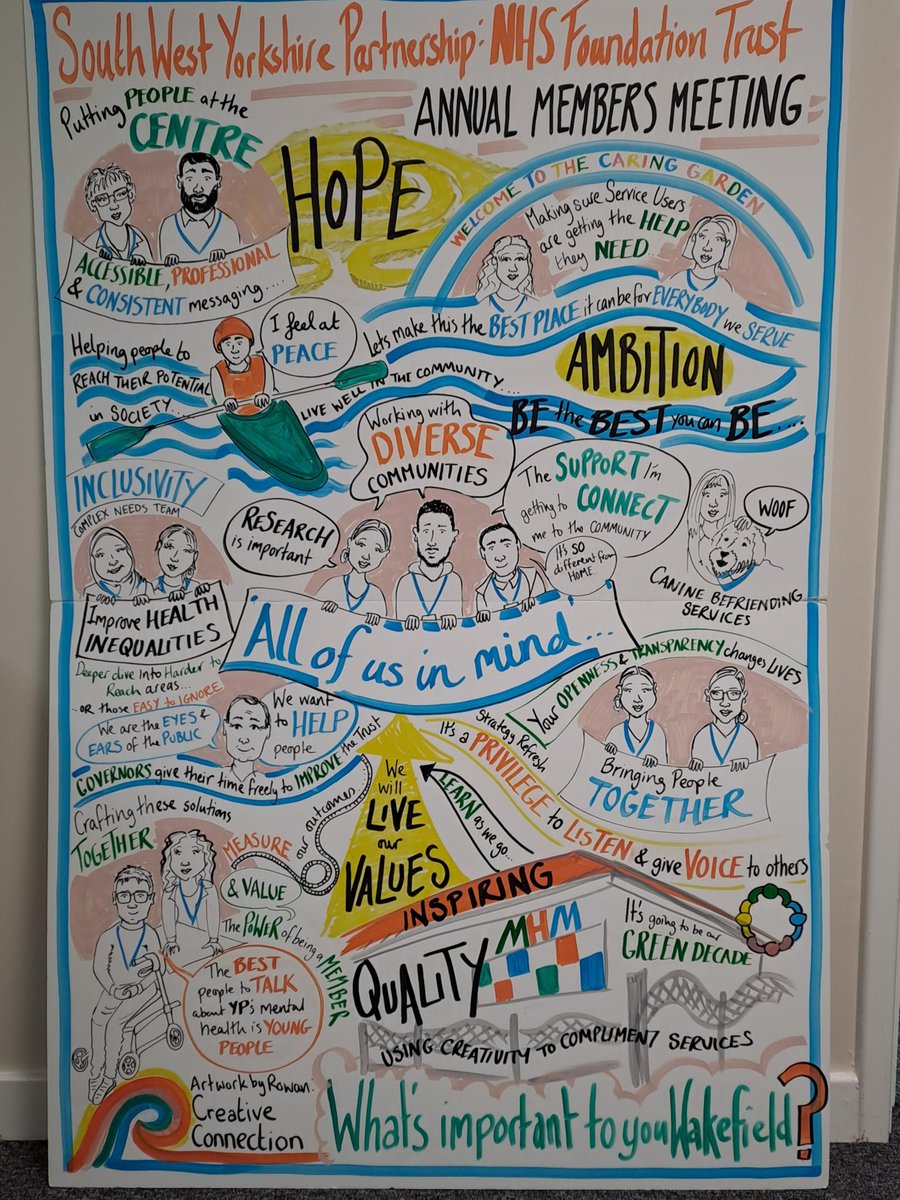 South West Yorkshire Partnership: NHS Foundation Trust
ANNUAL MEMBERS MEETING
Putting PEOPLE at the
CENTRE
HOPE
ACCESSIBLE, PROFESSIONAL
& CONSISTENT messaging...
WELCOME TO THE CARING GARDEN
Making sure Service Users
are getting the HELP
they NEED
Lets make this the BEST PLACE it can be for EVERYBODY we SERVE
Helping people to
REACH THEIR POTENTIAL
in SOCIETY...
I feel at
PEACE
LIVE WELL IN THE COMMUNITY....
AMBITION
BE the BEST you can BE....
INCLUSIVITY
COMPLEX NEEDS TEAM
Improve HEALTH
INEQUALITIES
RESEARCH
is important
Working with
DIVERSE
COMMUNITIES
The SUPPORT I'm
getting to CONNECT
me to the COMMUNITY
It's SO
different from
HOME.
WOOF
CANINE BEFRIENDING
SERVICES
'All of us in mind'...
Deeper dive into Harder to
Reach areas...
..OR those EASY to IGNORE
We are the EYES &
EARS of the PUBLIC
We want
to HELP
people
GOVERNORS give their time freely to IMPROVE the Trust
Your OPENNESS & TRANSPARENCY changes LIVES
Bringing People
TOGETHER
Strategy Refresh
It's a PRIVILEGE to LISTEN & give VOICE to others
We
will
LIVE
our
VALUES
LEARN as we go...
Crafting these solutions
TOGETHER
MEASURE our outcomes
& VALUE
The POWER of being a MEMBER
The BEST
people to TALK
about YP's mental
health is YOUNG
PEOPLE
INSPIRING
QUALITY
MHM
It's going to be our
GREEN DECADE
USING CREATIVITY TO COMPLIMENT SERVICES
Artwork by Rowan:
Creative
Connection
What's important to you Wakefield?